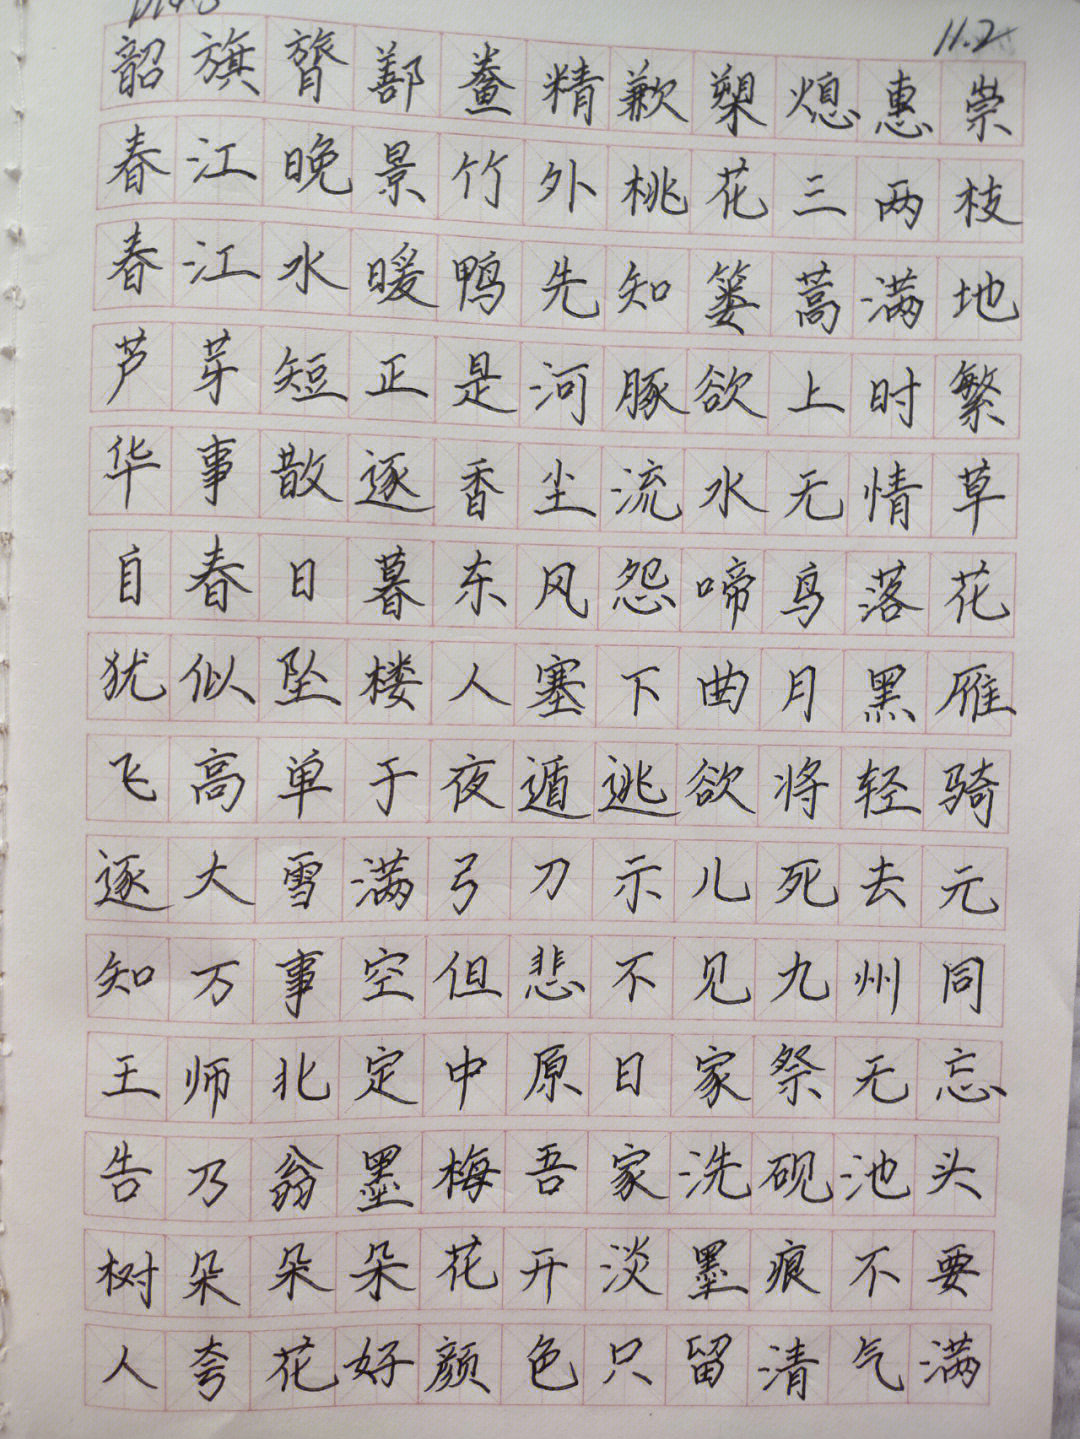 11.2
韶旗膂鄯鲞精歉塑熄惠崇
春江晚景竹外桃花三两枝
春江水暖鸭先知篓蒿满地
芦芽短正是河豚欲上时繁
华事散逐香尘流水无情草
自春日暮东风怨啼鸟落花
犹似坠楼人塞下曲月黑雁
飞高单于夜遁逃欲将轻骑
逐大雪满弓刀示儿死去元
知万事空但悲不见九州同
王师北定中原日家祭无忘
告乃翁墨梅吾家洗砚池头
树朵朵朵花开淡墨痕不要
人夸花好颜色只留清气满